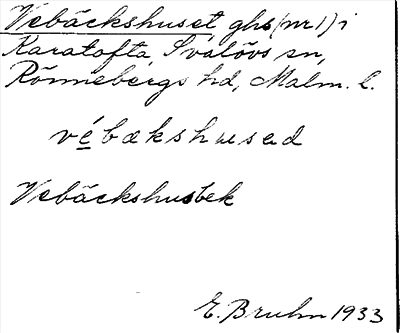 Vebäckshuset, ghs (nr 1) i
Karatofta, Svalövs sn,
Rönnebergs hd, Malm. l.
vébækshusəd
Vebäckshusbek
E. Bruhn 1933